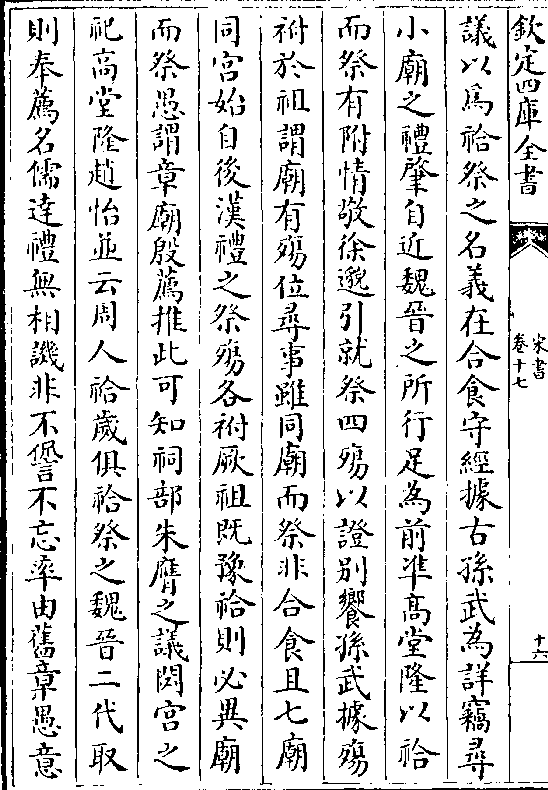 欽定四庫全書
宋書
卷十七
十六
議以為祫祭之名義在合食守經據古孫武為詳竊尋
小廟之禮肇自近魏晉之所行足為前準高堂隆以祫
而祭有附情敬徐邈引就祭四殤以證别饗孫武據殤
祔於祖謂廟有殤位尋事雖同廟而祭非合食且七廟
同宫始自後漢禮之祭殤各祔厥祖既豫祫則必異廟
而祭愚謂章廟殷薦推此可知祠部朱膺之議閟宫之
祀高堂隆趙怡並云周人祫歲俱祫祭之魏晉二代取
則奉薦名儒達禮無相譏非不諐不忘率由舊章愚意